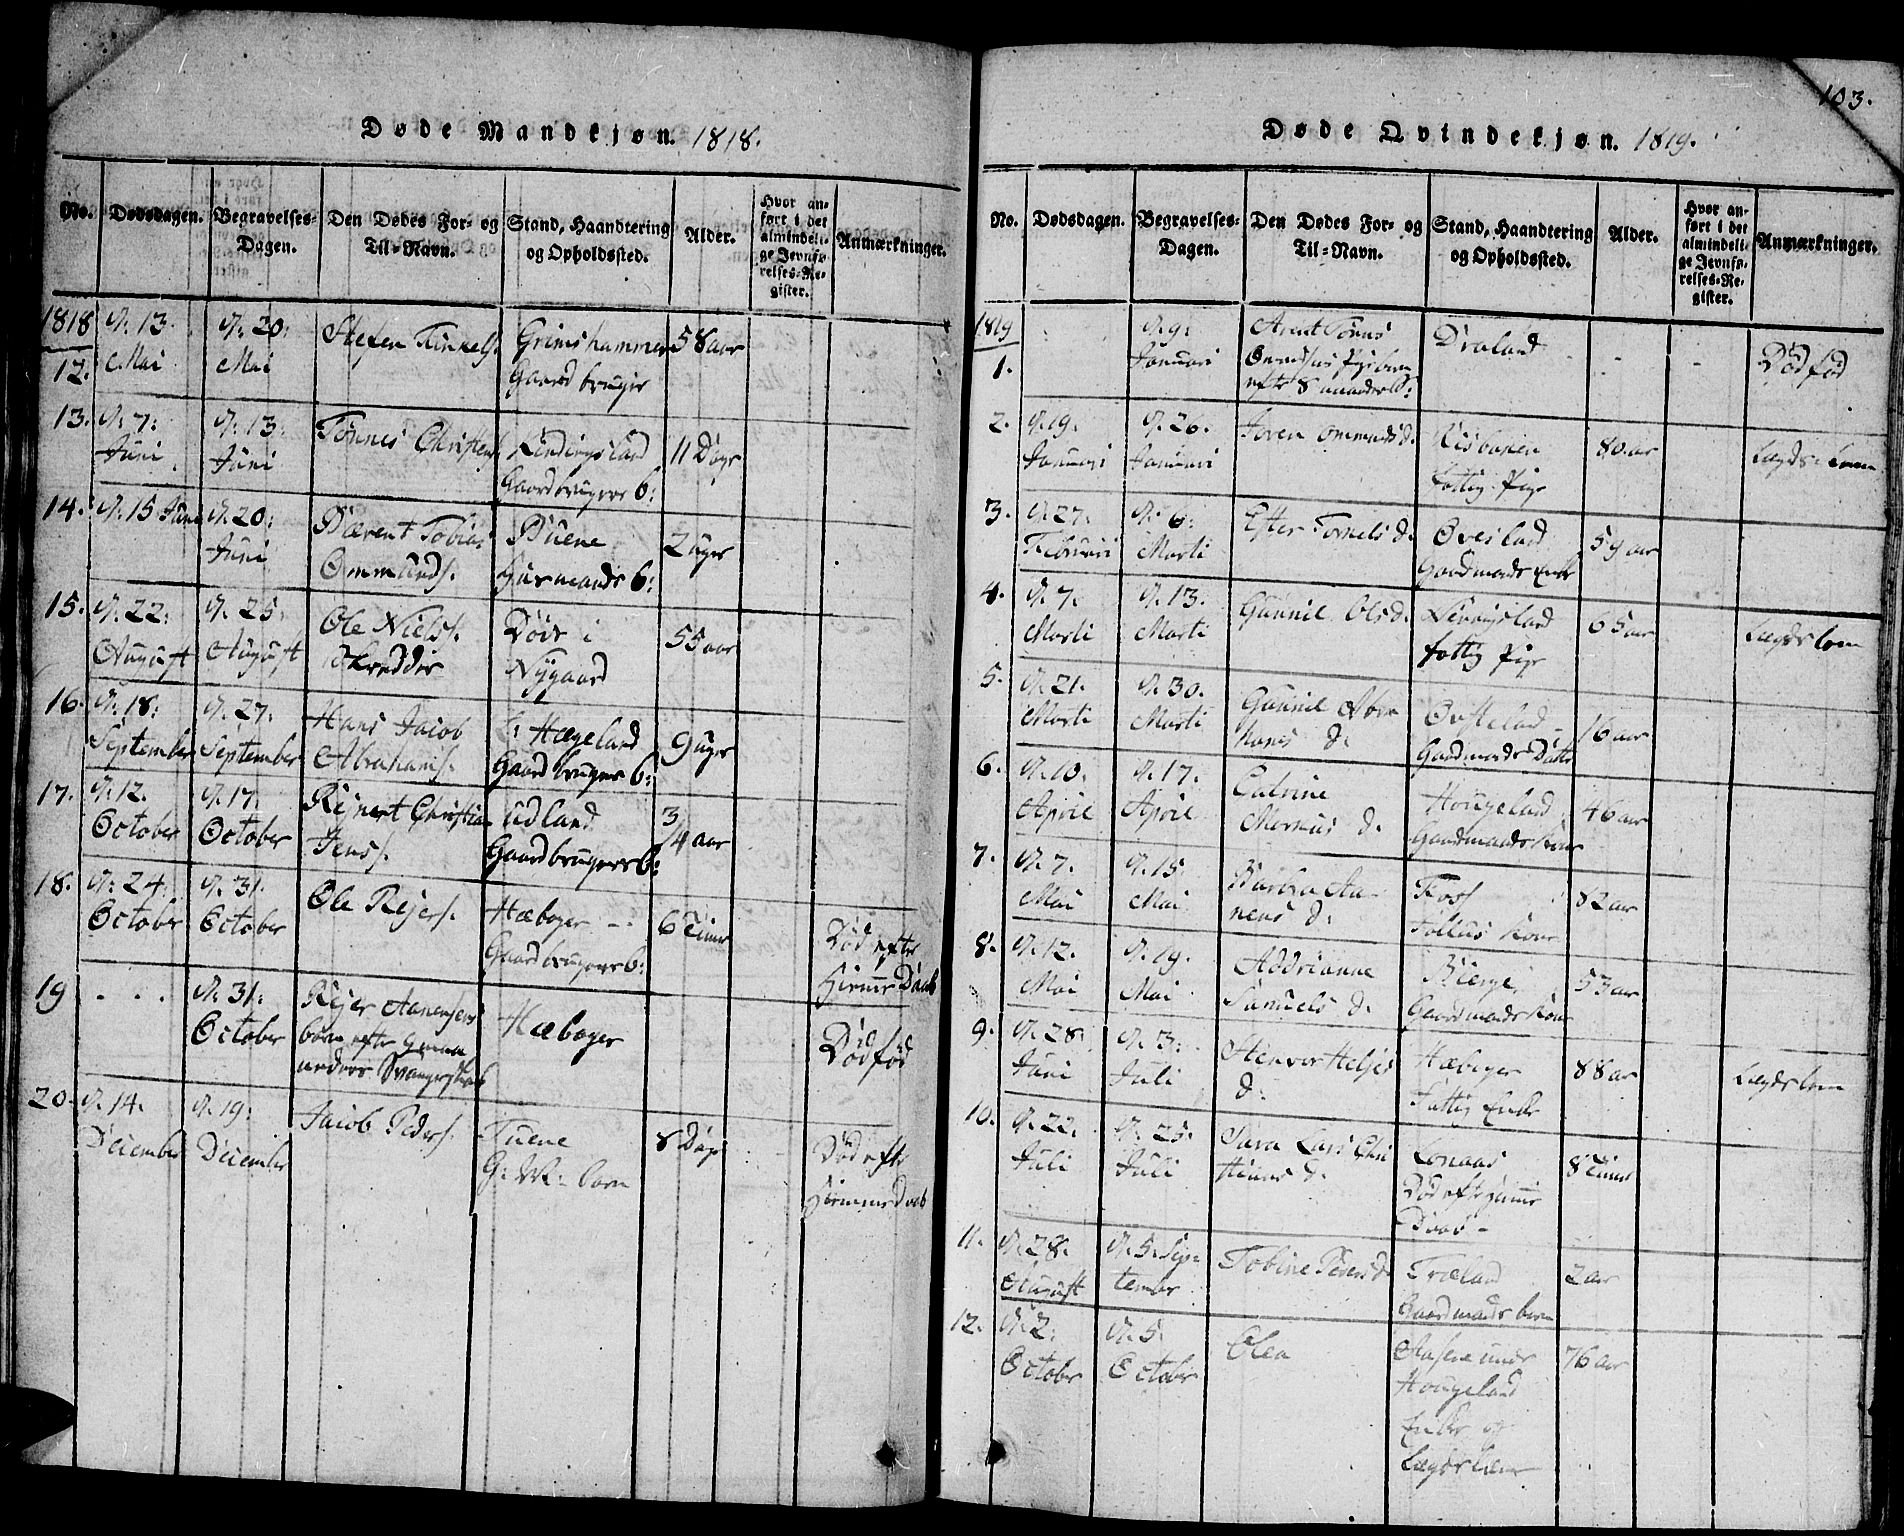 Døde Mandkjøn. 1818.
No. Dødsdagen. Begravelses-Dagen. Den Dødes For- og Til-Navn. Stand, Haandtering og Opholdssted. Alder. Hvor anført i det almindelige Jevnførelses-Register. Anmærkninger.
1818
12. d. 13. Mai d. 20: Mai Stefen Grimshammer Gaardbruger 58 aar
13. d. 7: Juni d. 13: Juni Tönnes Christens. Gaardbrugers b: 11 Dage
14. d. 15 Juni d. 20: Juni Bærent Tobias Ommunds. Buene Huusmands b: 2 uger
15. d. 22: August d. 25: August Ole Niels. Skredder Döde i Nygaard 55 aar
16. d. 18: September d. 27: September Hans Jacob Abrahams. Hægeland Gaardbrugers b: 9 uger
17. d. 12. October d. 17: October Rejnert Christian Jens. Udland Gaardbrugers b: 3/4 aar
18. d. 24: October d. 31. October Ole Rejers. Hæbager Gaardbrugers b: 6 Timer Död efter Hiemme Daab
19 . . . d. 31: October Rejer Aanensens barn efter Svangerskab Hæbager Dödfød
20. d. 14. December d. 19: December Jacob Peders. Tuene G: M: barn 8 Dage Död efter Hiemmedaab
103.
Døde Qvindekjøn. 1819.
No. Dødsdagen. Begravelses-Dagen. Den Dødes For- og Til-Navn. Stand, Haandtering og Opholdssted. Alder. Hvor anført i det almindelige Jevnførelses-Register. Anmærkninger.
1819
1. d. 9. Januari Arent Tönnes Pigebarn efter 8 Draland Dödfød
2. d. 19. Januari d. 26. Januari Joren Ommundsd. Risbakken fattig Pige 80. ar Lægdslem
3. d. 27. Februari d. 6: Marti Ester Torkelsd. Øvesland Gaardmands Enke 59 aar
4. d. 7. Marti d. 13. Marti Gunnil Olsd. fattig Pige 65 aar Lægdslem
5. d. 21. Marti d. 30. Marti Gunnil Abrahams d. Gaardmands Datter 16 aar
6. d. 10. April d. 17. April Calvine Markus d. Hougeland Gaardmands Kone 46 aar
7. d. 7. Mai d. 15. Mai Barbra Aanens d. Foss Kone 82 aar
8. d. 12. Mai d. 19. Mai Addrianne Samuels d. Bierge Gaardmands Kone 53 aar
9. d. 28. Juni d. 3: Juli Stenvor Heljes d. Hæbager Fattig Enke 88 ar Lægdslem
10. d. 22. Juli d. 25. Juli Sara Lars Christines d. Lonaas Död efter Hiemme Daab 8 Timer
11. d. 28. August d. 5. September Tobine Pedersd. Træland Gaardmands barn 2 aar
12. d. 2: October d. 5. October Olea Aasene under Hougeland Enke og Lægdslem 76 aar